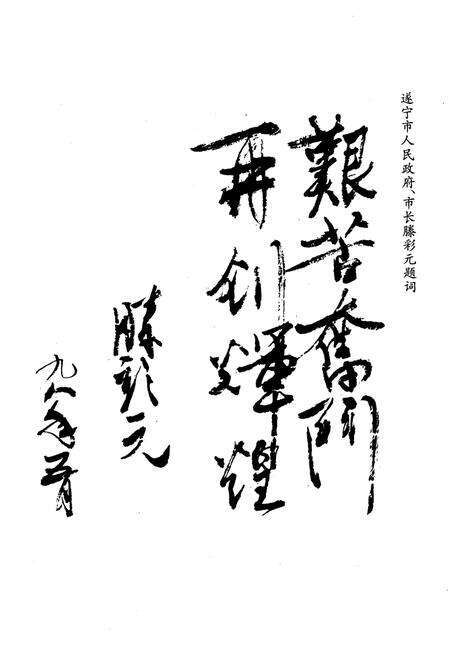 遂宁市人民政府、市长滕彩元题词
艱苦奮鬥
再创輝煌
滕彩元
九八年五月